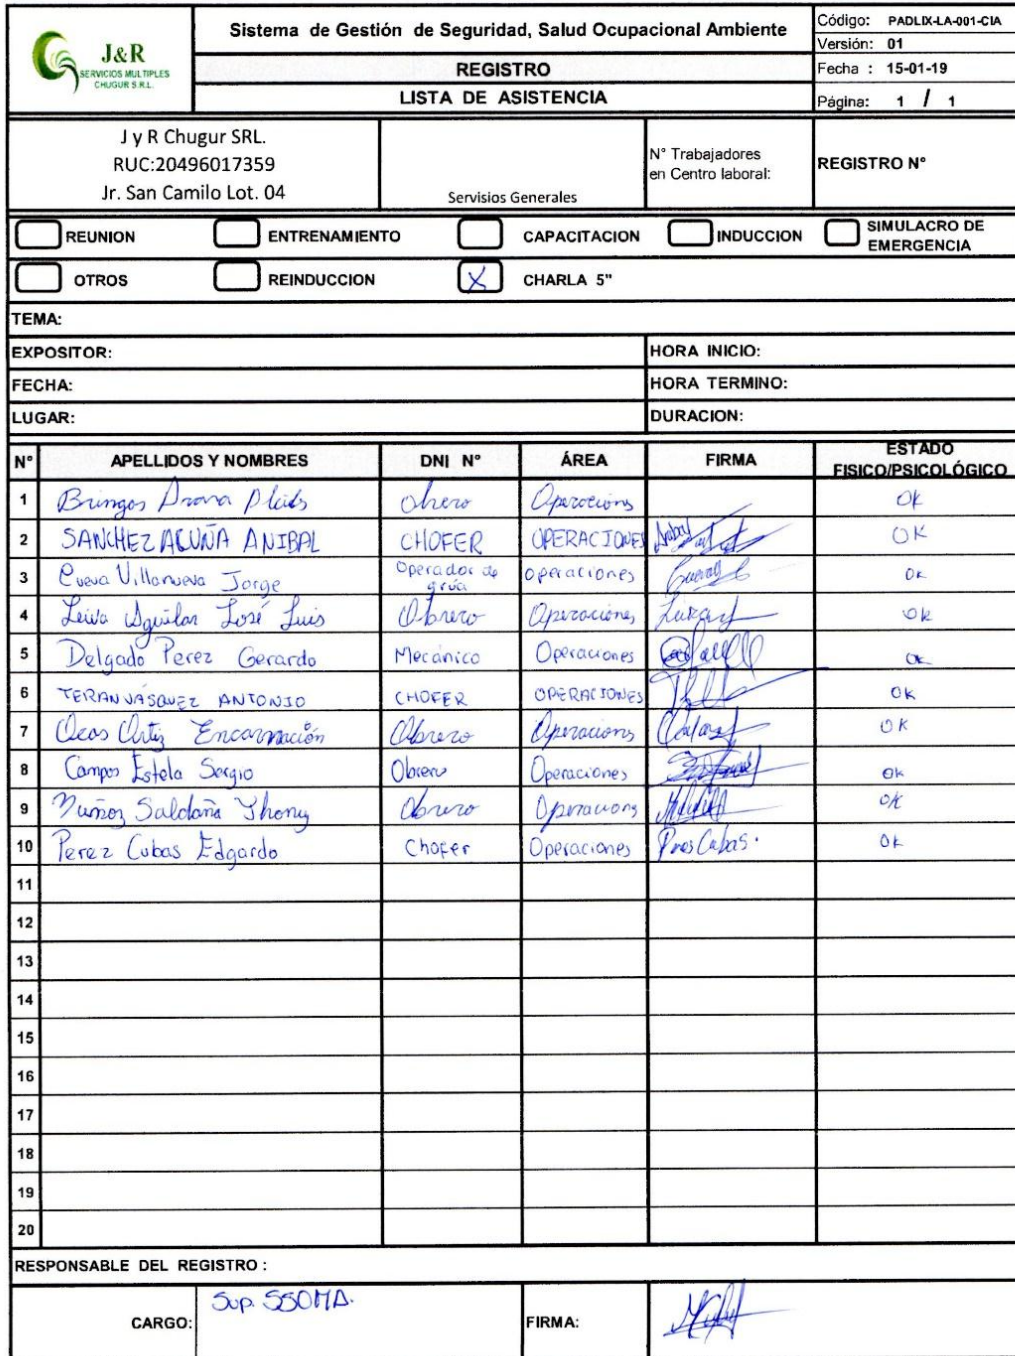 J&R
SERVICIOS MULTIPLES
CHUGUR S.R.L.
Sistema de Gestión de Seguridad, Salud Ocupacional Ambiente
REGISTRO
LISTA DE ASISTENCIA
Código: PADLIX-LA-001-CIA
Versión: 01
Fecha : 15-01-19
Página: 1 / 1
J y R Chugur SRL.
RUC:20496017359
Jr. San Camilo Lot. 04
Servisios Generales
N° Trabajadores
en Centro laboral:
REGISTRO N°
REUNION ENTRENAMIENTO CAPACITACION INDUCCION SIMULACRO DE EMERGENCIA
OTROS REINDUCCION X CHARLA 5"
TEMA:
EXPOSITOR: HORA INICIO:
FECHA: HORA TERMINO:
LUGAR: DURACION:
N° APELLIDOS Y NOMBRES DNI N° ÁREA FIRMA ESTADO FISICO/PSICOLÓGICO
1 Obrero Operaciones OK
2 SANCHEZ ACUÑA ANIBAL CHOFER OPERACIONES OK
3 Cueva Villanueva Jorge Operador de grúa Operaciones OK
4 Leiva Aguilar José Luis Obrero Operaciones OK
5 Delgado Perez Gerardo Mecánico Operaciones OK
6 TERAN VASQUEZ ANTONIO CHOFER OPERACIONES OK
7 Ocas Ortiz Encarnación Obrero Operaciones OK
8 Campos Estela Sergio Obrero Operaciones OK
9 Muñoz Saldaña Jhony Obrero Operaciones OK
10 Perez Cubas Edgardo Chofer Operaciones Perez Cubas. OK
11
12
13
14
15
16
17
18
19
20
RESPONSABLE DEL REGISTRO :
CARGO: Sup. SSOMA. FIRMA: